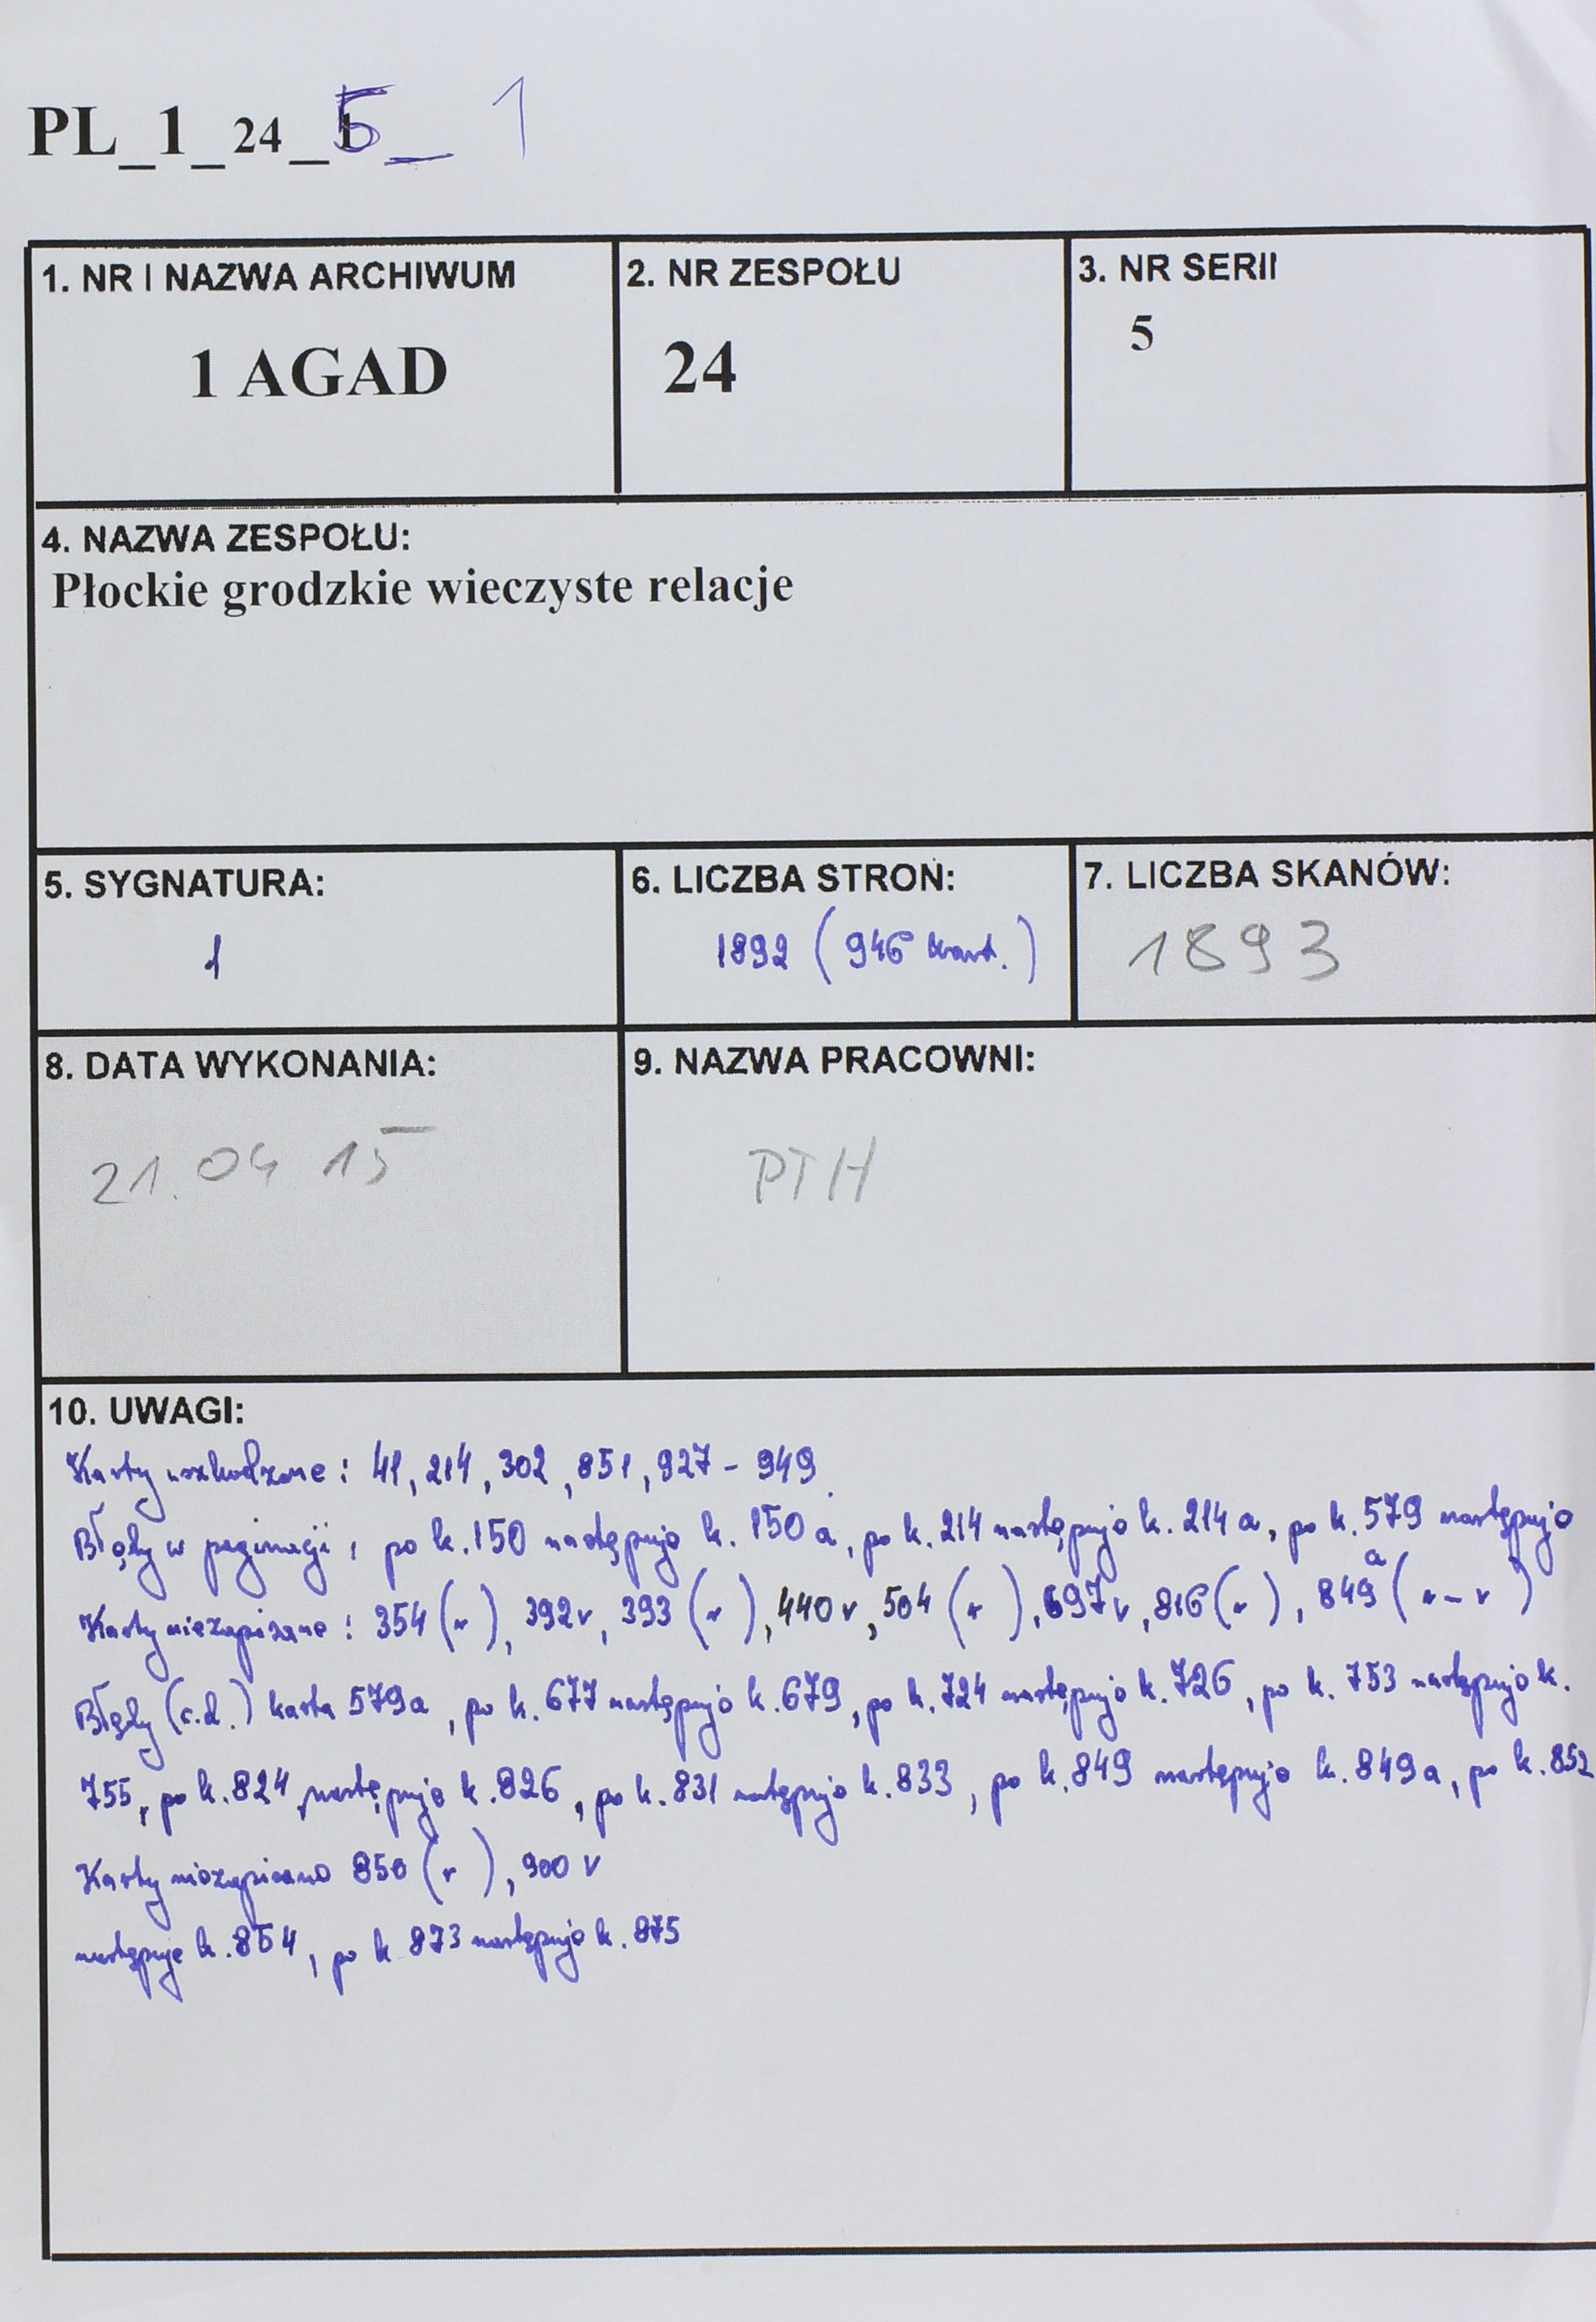 PL_1_24_5_1
1. NR I NAZWA ARCHIWUM
1 AGAD
2. NR ZESPOŁU
24
3. NR SERII
5
4. NAZWA ZESPOŁU:
Płockie grodzkie wieczyste relacje
5. SYGNATURA:
1
6. LICZBA STRON:
1892 (946 kart.)
7. LICZBA SKANÓW:
1893
8. DATA WYKONANIA:
21.04 15
9. NAZWA PRACOWNI:
PTH
10. UWAGI:
Karty uszkodzone: 41, 214, 302, 851, 927 - 949.
Błędy w paginacji: po k. 150 następuje k. 150 a, po k. 214 następuje k. 214 a, po k. 579 następuje
Karty niezapisane: 354 (r), 392v, 393 (r), 440 v, 504 (r), 697v, 816 (r), 849a (r-v)
Błędy (c.d.) karta 579a, po k. 677 następuje k. 679, po k. 724 następuje k. 726, po k. 753 następuje k.
755, po k. 824 następuje k. 826, po k. 831 następuje k. 833, po k. 849 następuje k. 849a, po k. 852
Karty niezapisane 850 (r), 900 v
następuje k. 854, po k 873 następuje k. 875